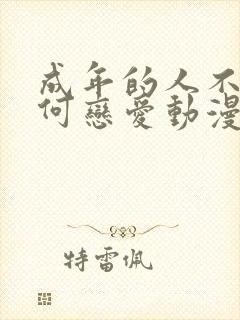 成年的人不
何戀愛動漫
特雷佩